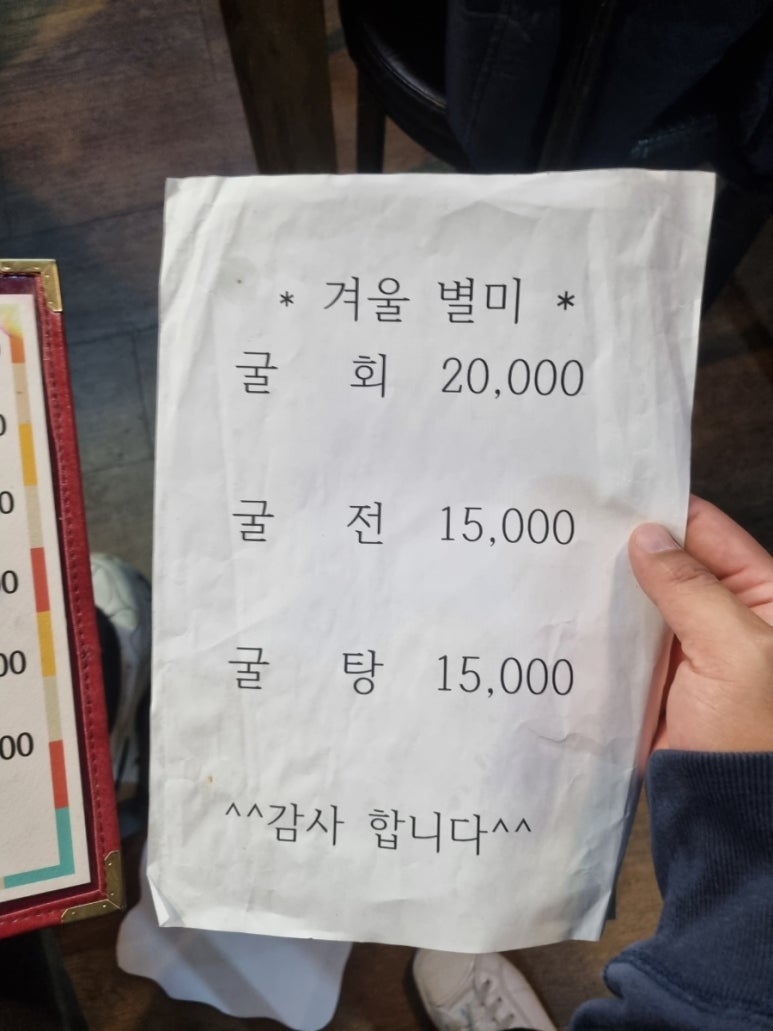 * 겨울 별미 *
굴 회 20,000
굴 전 15,000
굴 탕 15,000
^^감사 합니다^^
0
0
0
00
00